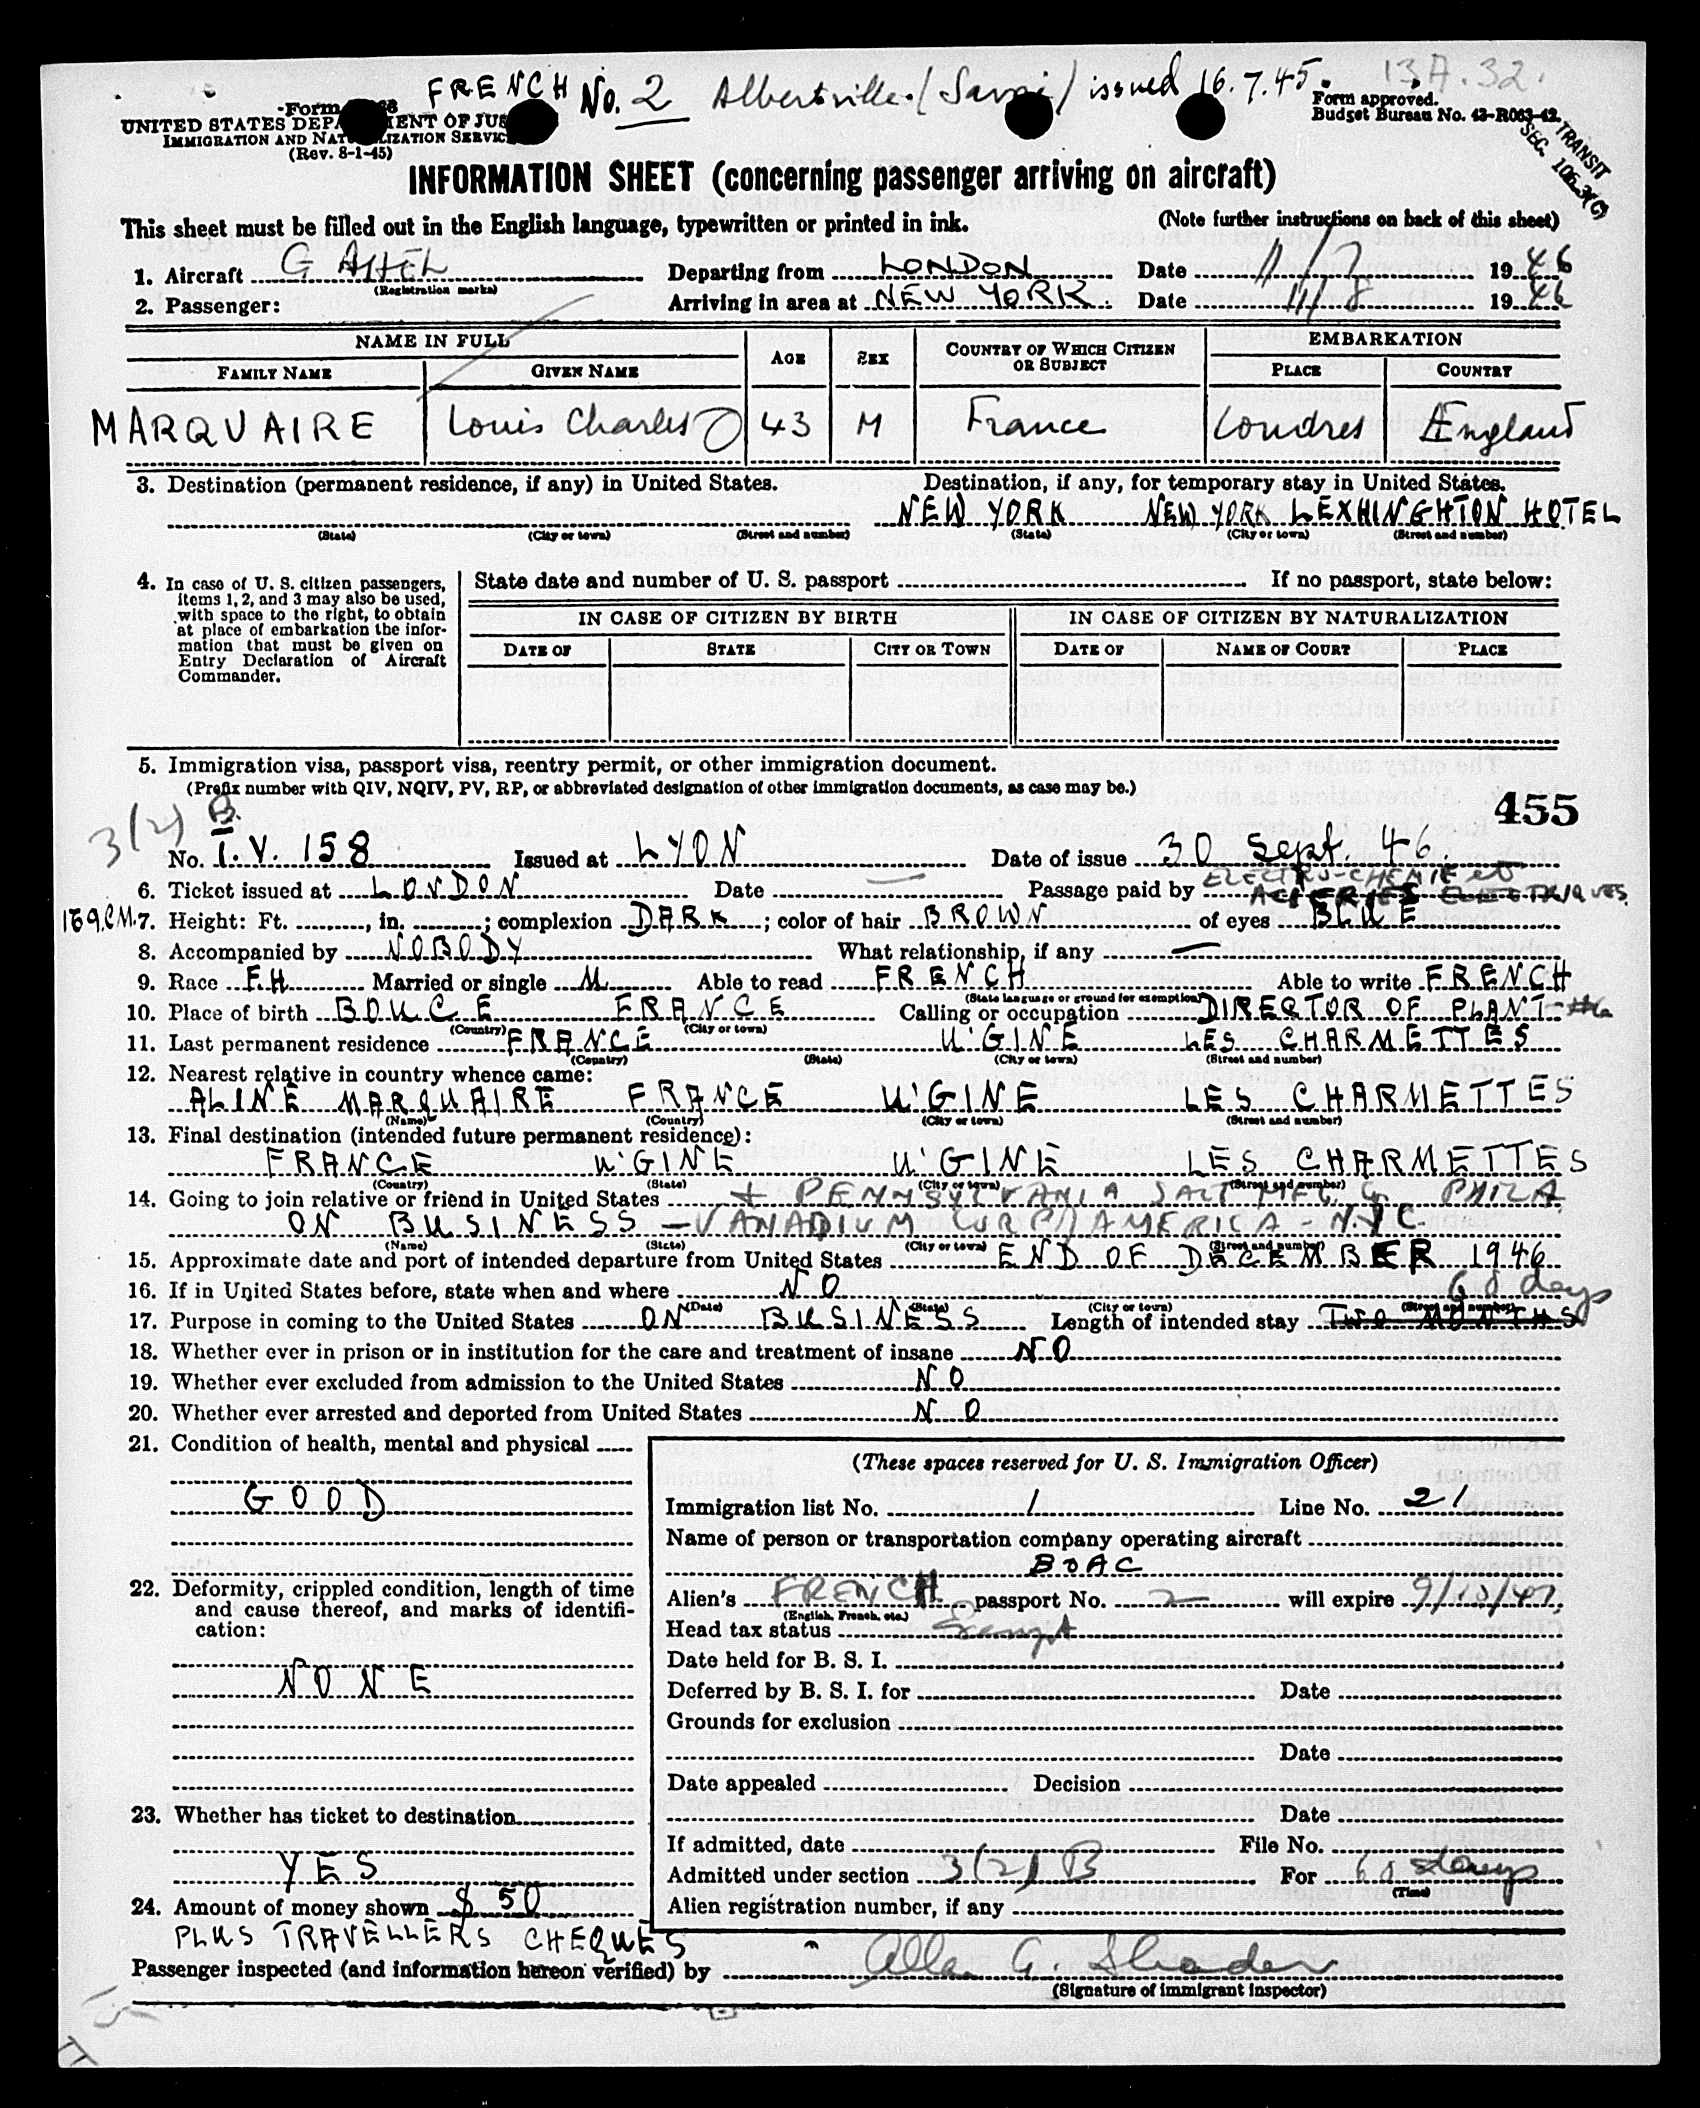 FRENCH No. 2 Albertville (Savoi) issued 16.7.45. 13A.32.
Form
UNITED STATES DEPARTMENT OF JUS
IMMIGRATION AND NATURALIZATION SERVICE
(Rev. 8-1-45)
Form approved.
Budget Bureau No. 43-R063-42.
TRANSIT
SEC. 106.3(C)
INFORMATION SHEET (concerning passenger arriving on aircraft)
This sheet must be filled out in the English language, typewritten or printed in ink. (Note further instructions on back of this sheet)
1. Aircraft G AHEL Departing from LONDON Date 11/7 1946
(Registration marks)
2. Passenger: Arriving in area at NEW YORK. Date 11/8 1946
NAME IN FULL AGE SEX COUNTRY OF WHICH CITIZEN OR SUBJECT EMBARKATION
FAMILY NAME GIVEN NAME PLACE COUNTRY
MARQUAIRE Louis Charles 43 M France Londres England
3. Destination (permanent residence, if any) in United States. Destination, if any, for temporary stay in United States.
NEW YORK NEW YORK LEXHINGHTON HOTEL
(State) (City or town) (Street and number) (State) (City or town) (Street and number)
4. In case of U. S. citizen passengers, items 1, 2, and 3 may also be used, with space to the right, to obtain at place of embarkation the information that must be given on Entry Declaration of Aircraft Commander.
State date and number of U. S. passport If no passport, state below:
IN CASE OF CITIZEN BY BIRTH IN CASE OF CITIZEN BY NATURALIZATION
DATE OF STATE CITY OR TOWN DATE OF NAME OF COURT PLACE
5. Immigration visa, passport visa, reentry permit, or other immigration document.
(Prefix number with QIV, NQIV, PV, RP, or abbreviated designation of other immigration documents, as case may be.)
455
3(2) B.
No. T.V. 158 Issued at LYON Date of issue 30 Sept. 46.
6. Ticket issued at LONDON Date — Passage paid by ELECTRO-CHEMIE et
ACIERIES ELECTRIQUES
169.CM. 7. Height: Ft. , in. ; complexion DARK ; color of hair BROWN of eyes BLUE
8. Accompanied by NOBODY What relationship, if any —
9. Race F.H Married or single M Able to read FRENCH Able to write FRENCH
(State language or ground for exemption)
10. Place of birth BOUCE FRANCE Calling or occupation DIRECTOR OF PLANT
(Country) (City or town)
11. Last permanent residence FRANCE U'GINE LES CHARMETTES
(Country) (State) (City or town) (Street and number)
12. Nearest relative in country whence came:
ALINE MARQUAIRE FRANCE U'GINE LES CHARMETTES
(Name) (Country) (City or town) (Street and number)
13. Final destination (intended future permanent residence):
FRANCE U'GINE U'GINE LES CHARMETTES
(Country) (State) (City or town) (Street and number)
14. Going to join relative or friend in United States + PENNSYLVANIA SALT MFG. Co PHILA
ON BUSINESS - VANADIUM CORP/AMERICA - N.Y.C.
(Name) (State) (City or town) (Street and number)
15. Approximate date and port of intended departure from United States END OF DECEMBER 1946
16. If in United States before, state when and where NO
(Date) (State) (City or town) (Street and number)
60 days
17. Purpose in coming to the United States ON BUSINESS Length of intended stay TWO MONTHS
18. Whether ever in prison or in institution for the care and treatment of insane NO
19. Whether ever excluded from admission to the United States NO
20. Whether ever arrested and deported from United States NO
21. Condition of health, mental and physical
GOOD
22. Deformity, crippled condition, length of time
and cause thereof, and marks of identifi-
cation:
NONE
23. Whether has ticket to destination
YES
24. Amount of money shown $ 50
PLUS TRAVELLERS CHEQUES
(These spaces reserved for U. S. Immigration Officer)
Immigration list No. 1 Line No. 21
Name of person or transportation company operating aircraft
BOAC
Alien's FRENCH passport No. 2 will expire 9/10/47.
(English, French, etc.)
Head tax status Exempt
Date held for B. S. I.
Deferred by B. S. I. for Date
Grounds for exclusion
Date
Date appealed Decision
Date
If admitted, date File No.
Admitted under section 3(2) B For 60 days
(Time)
Alien registration number, if any
Passenger inspected (and information hereon verified) by Allan G. Shader
(Signature of immigrant inspector)